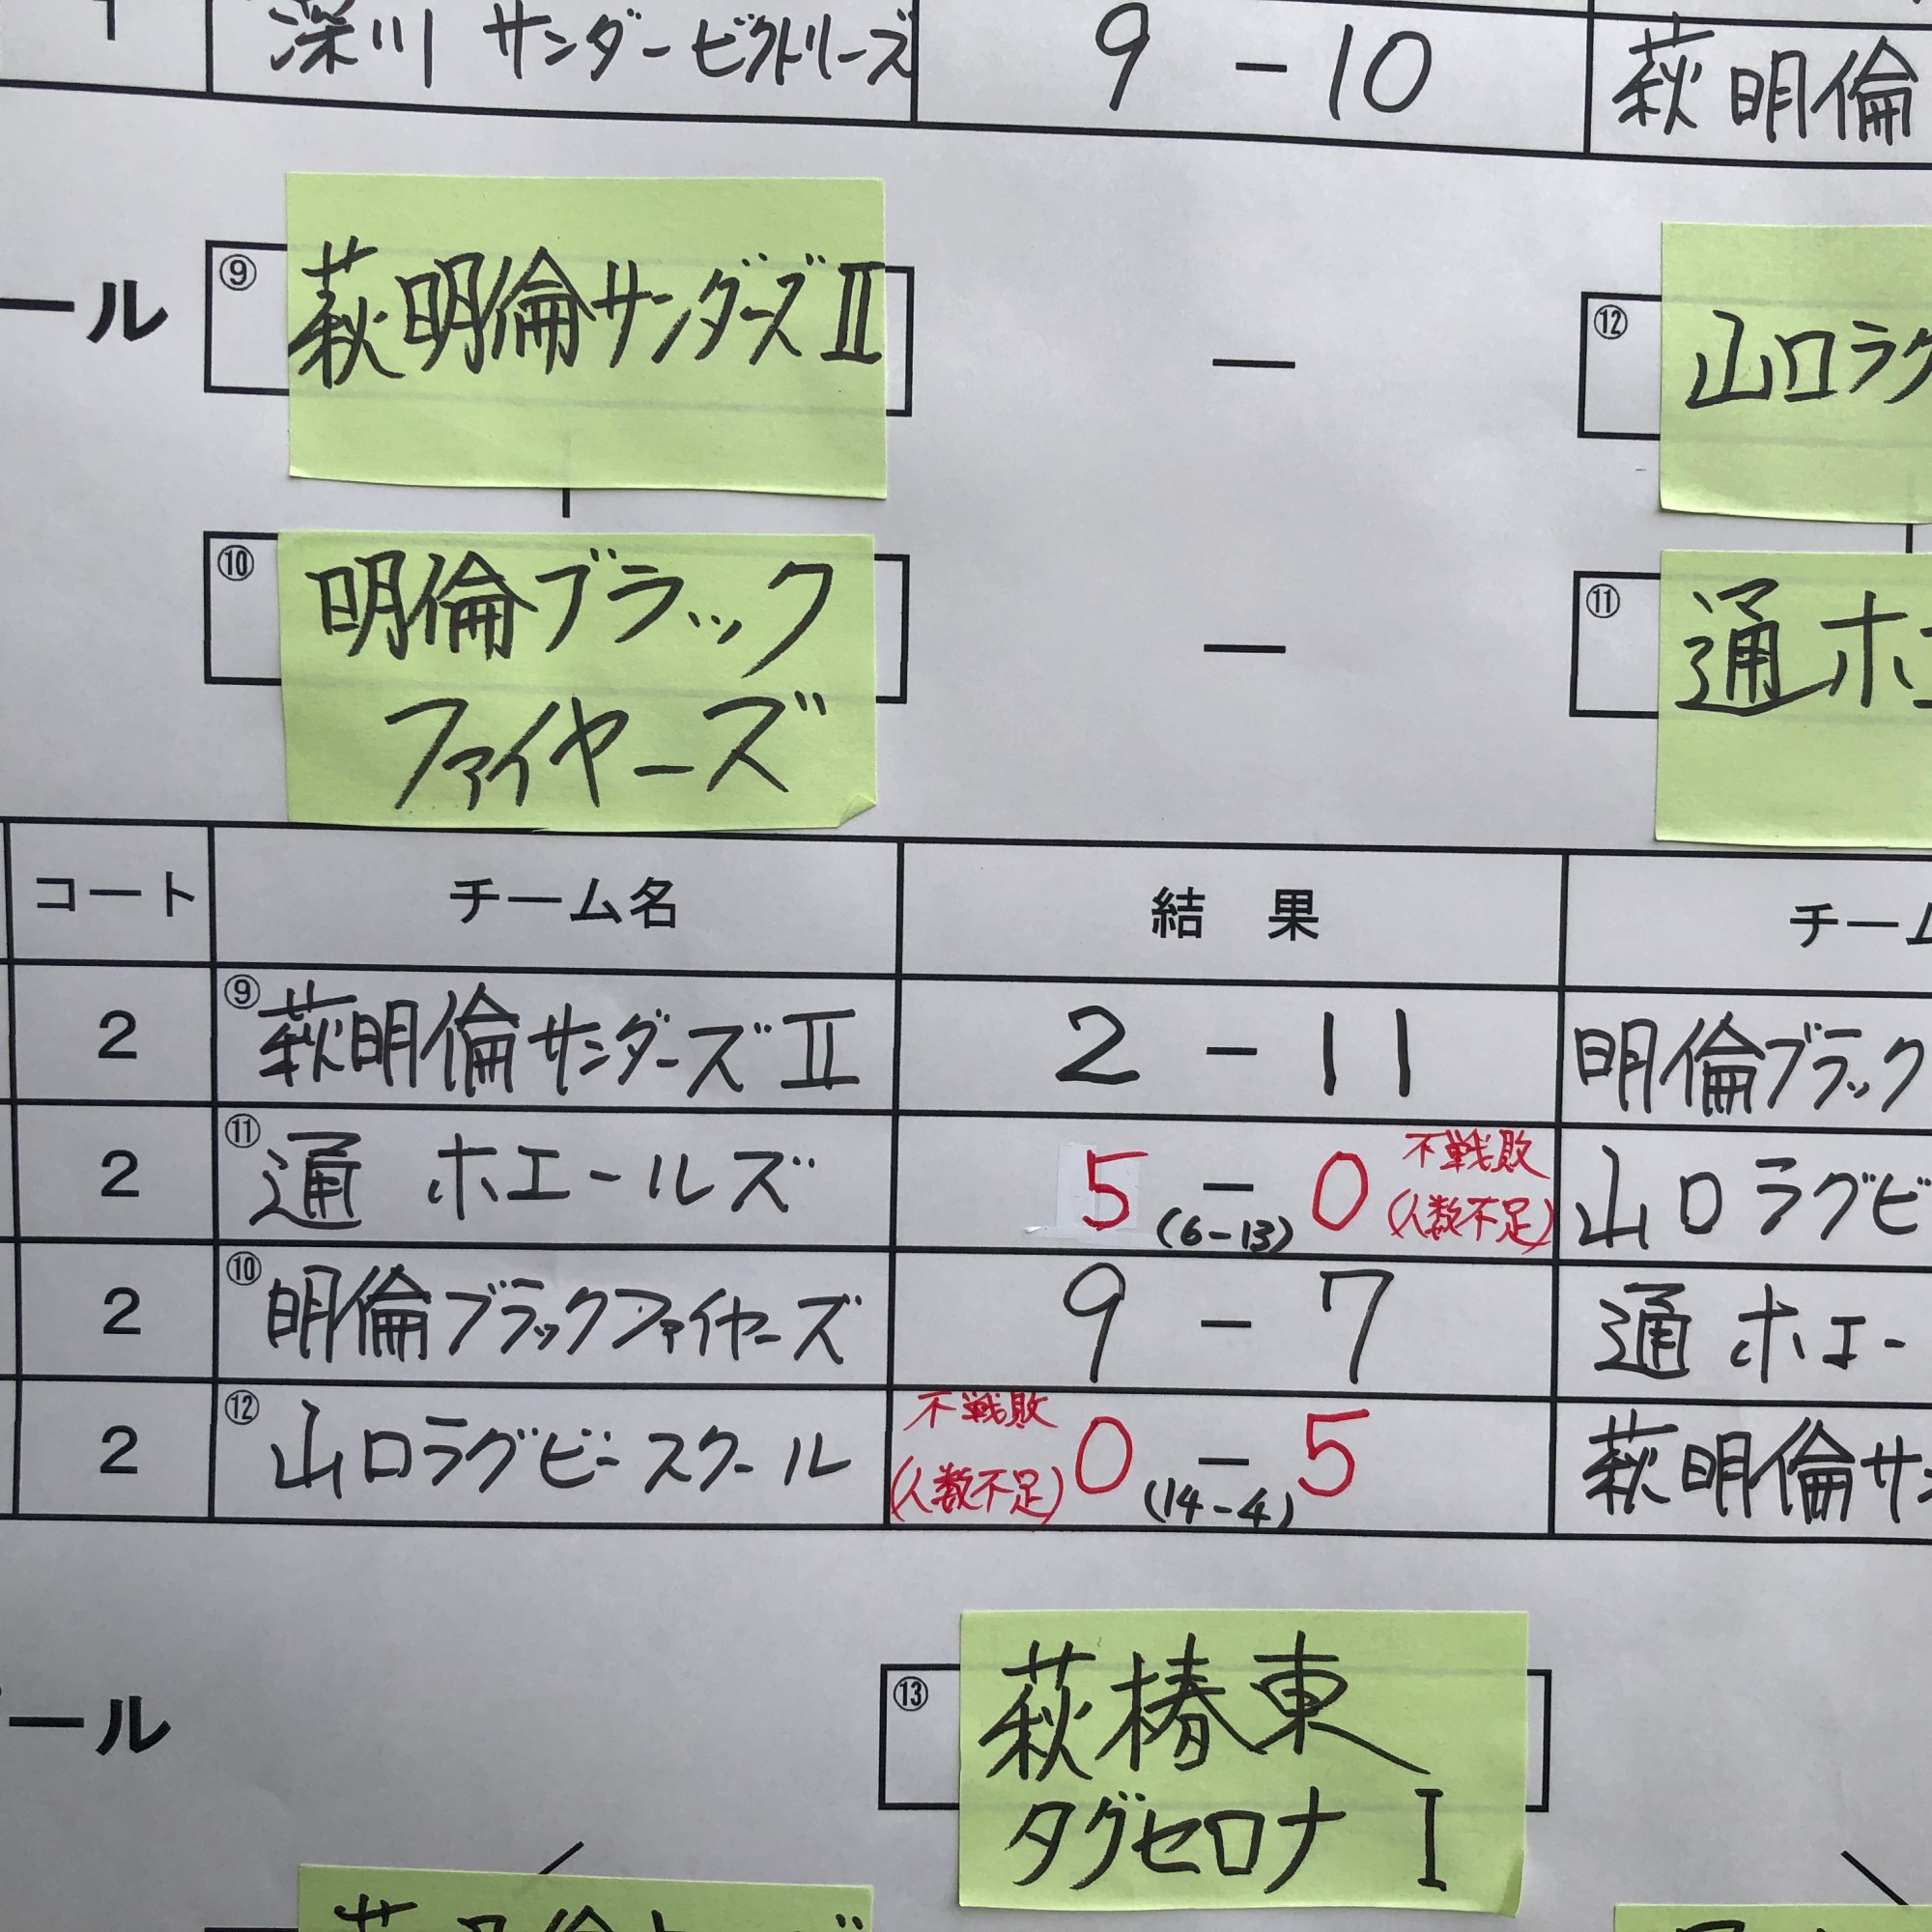 1 深川 サンダービクトリーズ 9 - 10 萩明倫
ール ⑨ 萩明倫サンダーズⅡ — ⑫ 山口ラグ
⑩ 明倫ブラック — ⑪ 通 ホエ
ファイヤーズ
コート チーム名 結 果 チーム
2 ⑨ 萩明倫サンダーズⅡ 2 - 11 明倫ブラック
2 ⑪ 通 ホエールズ 5 - 0 (6-13) 不戦敗 (人数不足) 山口ラグビ
2 ⑩ 明倫ブラックファイヤーズ 9 - 7 通 ホエー
2 ⑫ 山口ラグビースクール 不戦敗 (人数不足) 0 - 5 (14-4) 萩明倫サン
ール ⑬ 萩椿東
タグセロナ Ⅰ